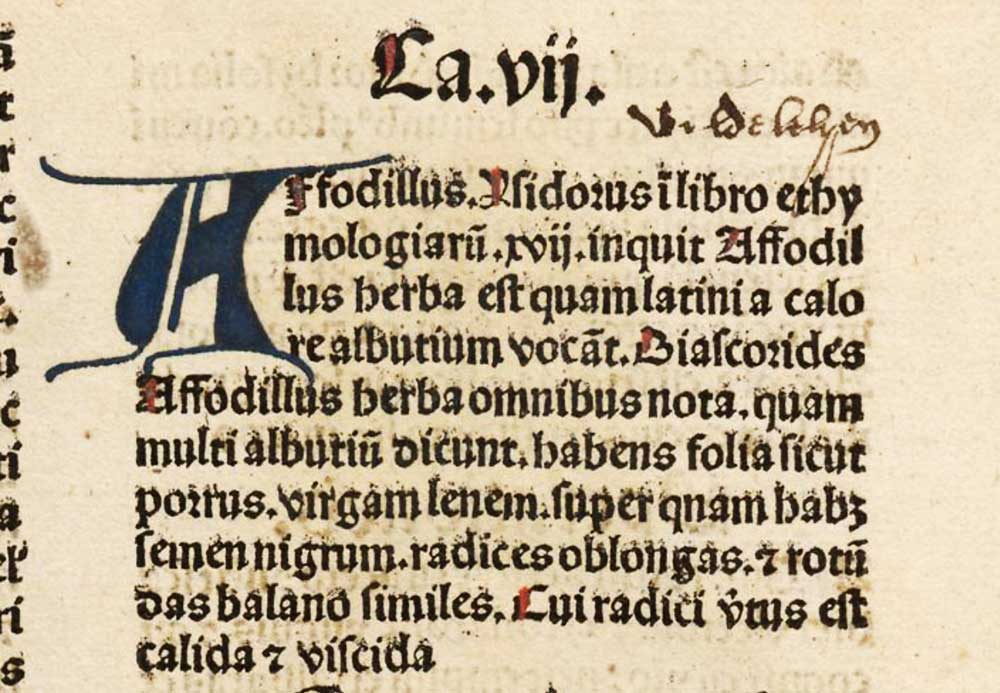 Ca.vij.
Affodillus. Ysidorus ī libro ethy
mologiarū .xvij. inquit Affodil
lus herba est quam latini a calo
re albutium vocāt. Diascorides
Affodillus herba omnibus nota. quam
multi albutiū dicunt. habens folia sicut
porrus. virgam lenem. super qnam habꝫ
semen nigrum. radices oblongas. ⁊ rotū
das balano similes. Cui radici v̓tus est
calida ⁊ viscida